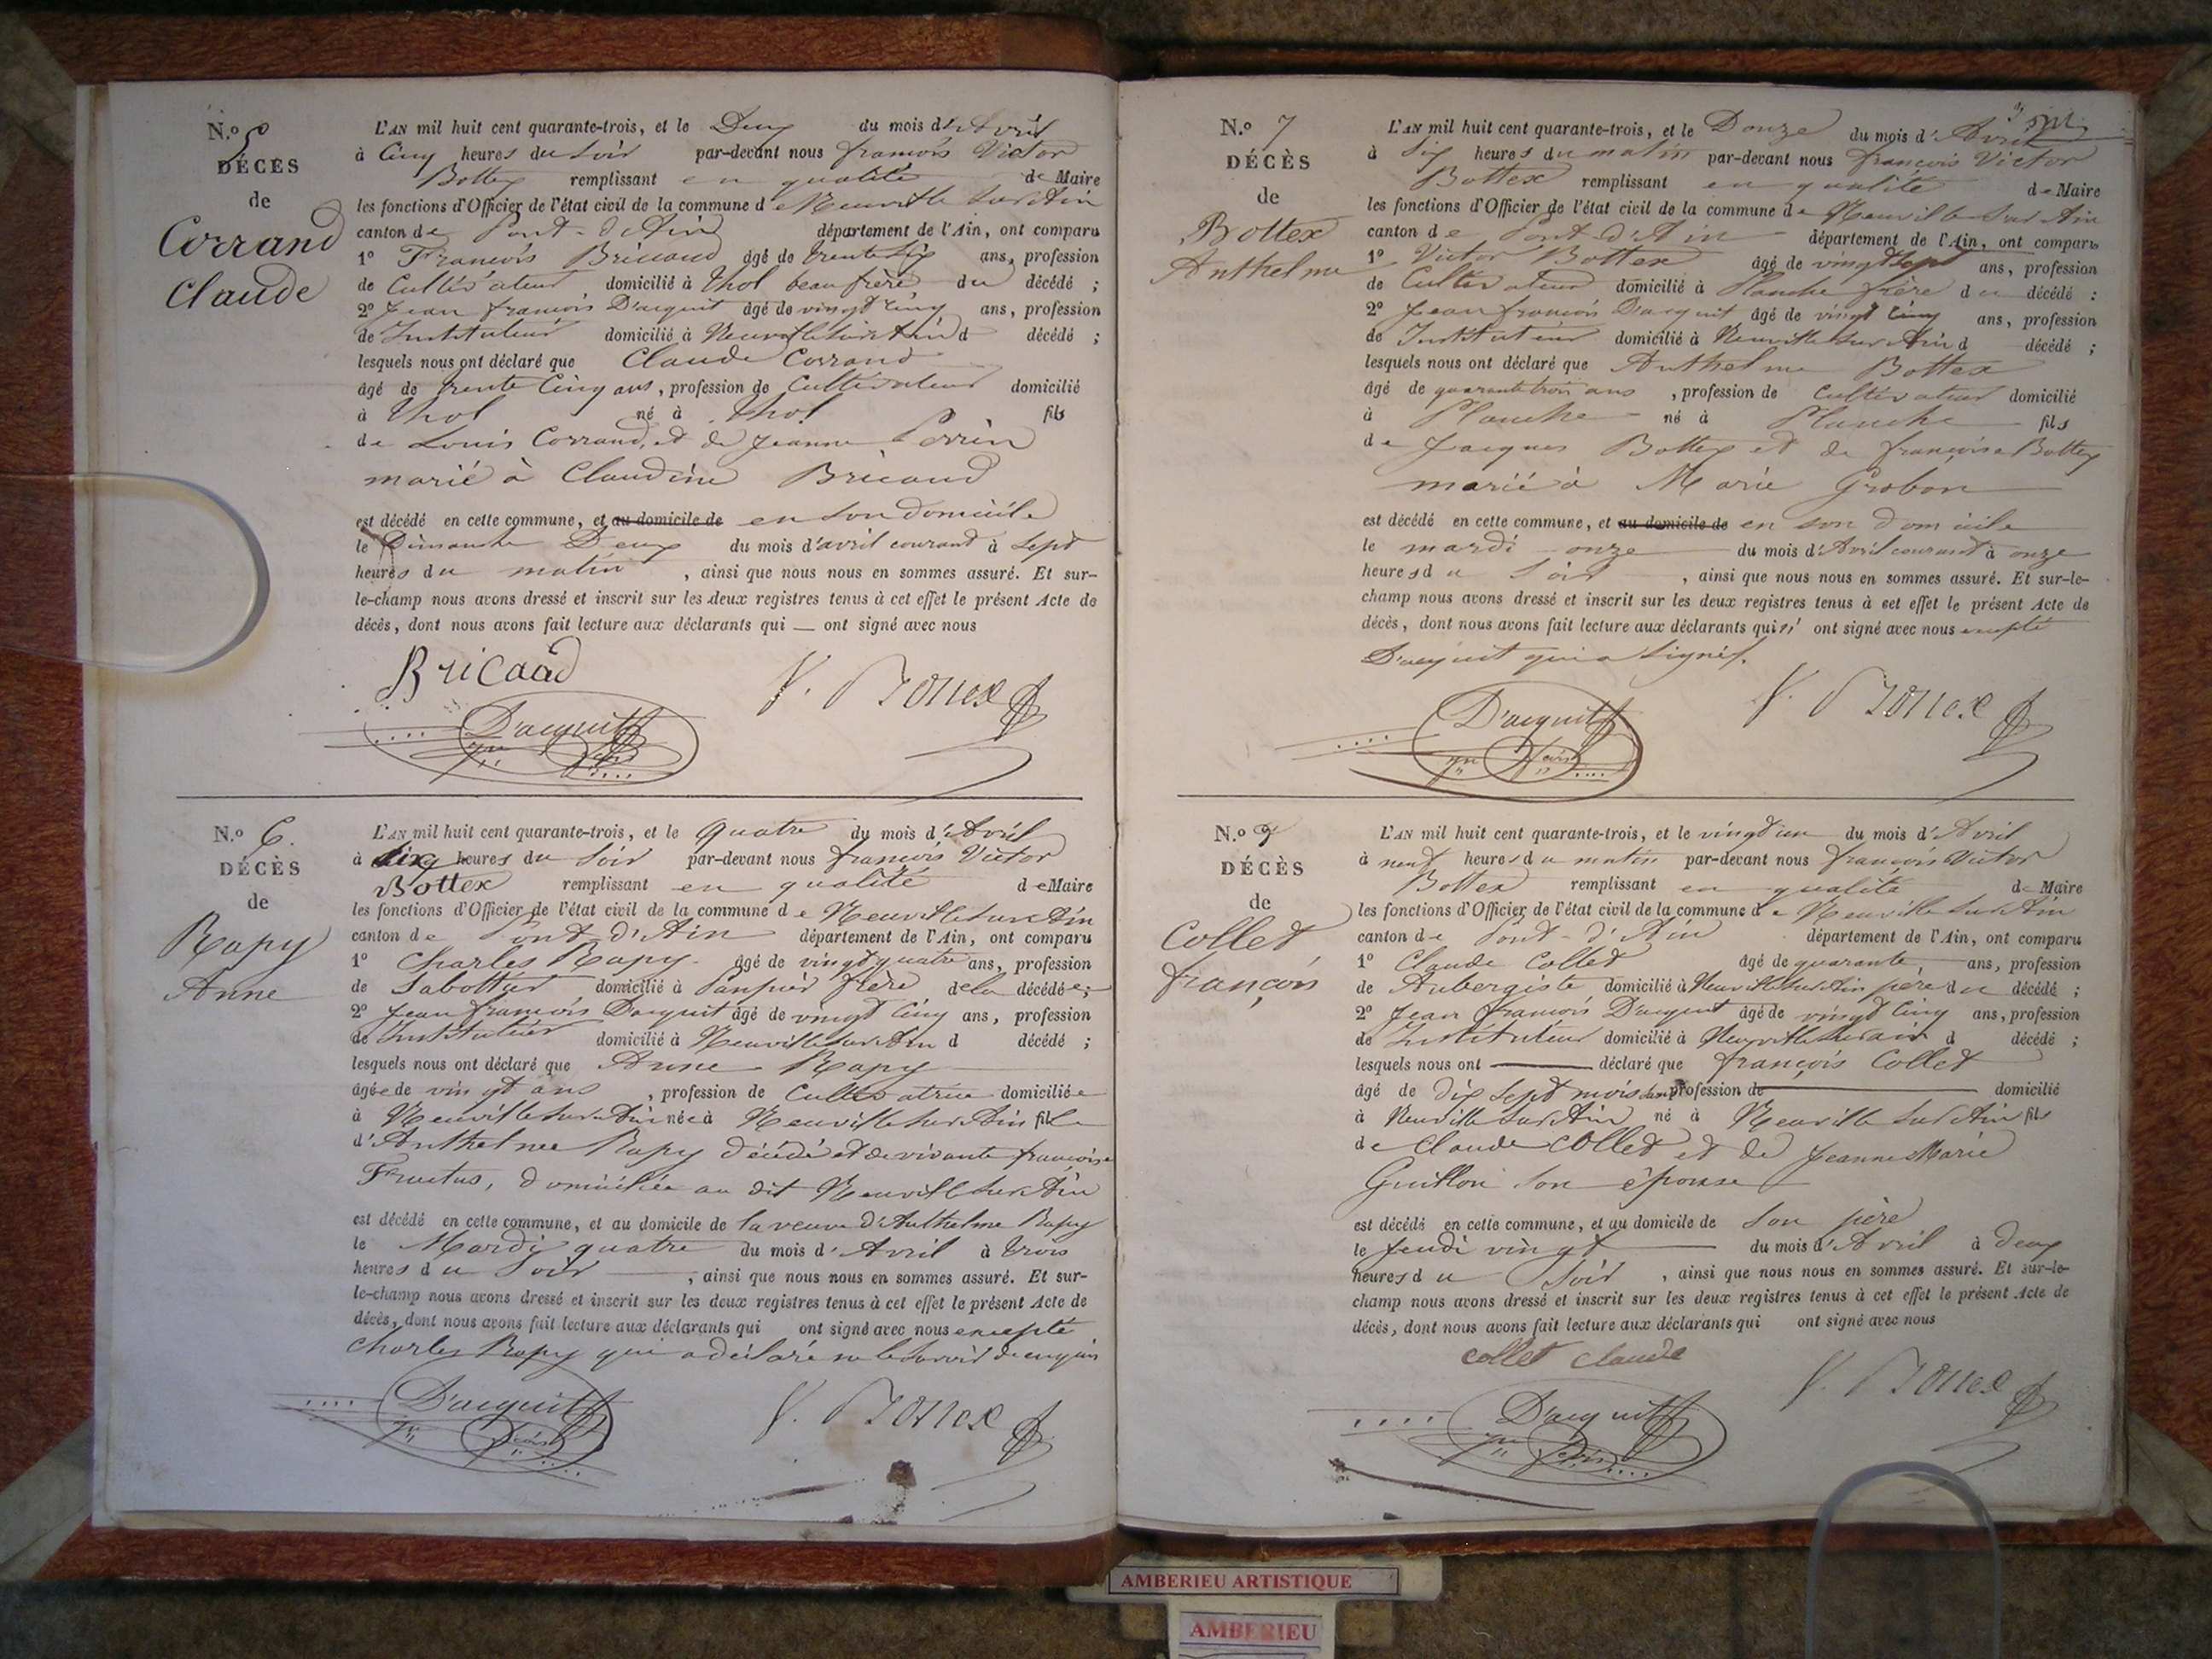 N.o 5
DÉCÈS
de
Corrand
Claude
L'AN mil huit cent quarante-trois, et le Deux du mois d'Avril
à Cinq heures du Soir par-devant nous françois Victor
Bottex remplissant en qualité de Maire
les fonctions d'Officier de l'état civil de la commune de Neuville sur Ain
canton de Pont-d'Ain département de l'Ain, ont comparu
1o François Bricaud âgé de trente Six ans, profession
de Cultivateur domicilié à Thol beau frère du décédé ;
2o Jean françois D'acquit âgé de vingt Cinq ans, profession
de Instituteur domicilié à Neuville sur Ain d décédé ;
lesquels nous ont déclaré que Claude Corrand
âgé de trente Cinq ans, profession de Cultivateur domicilié
à Thol né à Thol fils
de Louis Corrand, et de Jeanne Perrin
marié à Claudine Bricaud
est décédé en cette commune, et au domicile de en son Domicile
le Dimanche Deux du mois d'avril courant à Sept
heures du matin , ainsi que nous nous en sommes assuré. Et sur-
le-champ nous avons dressé et inscrit sur les deux registres tenus à cet effet le présent Acte de
décès, dont nous avons fait lecture aux déclarants qui — ont signé avec nous
Bricaud
V. Bottex
D'acquit
Jn fçois
N.o 6.
DÉCÈS
de
Rapy
Anne
L'AN mil huit cent quarante-trois, et le quatre du mois d'Avril
à heures du Soir par-devant nous françois Victor
Bottex remplissant en qualité de Maire
les fonctions d'Officier de l'état civil de la commune de Neuville sur Ain
canton de Pont d'Ain département de l'Ain, ont comparu
1o Charles Rapy âgé de vingt quatre ans, profession
de Sabottier domicilié à frère de la décédée ;
2o Jean françois D'acquit âgé de vingt Cinq ans, profession
de Instituteur domicilié à Neuville sur Ain d décédé ;
lesquels nous ont déclaré que Anne Rapy
âgée de vingt ans , profession de Cultivatrice domiciliée
à Neuville sur Ain née à Neuville sur Ain fille
d'Anthelme Rapy Décédé et de vivante françoise
Fructus, domiciliée au dit Neuville sur Ain
est décédé en cette commune, et au domicile de la veuve d'Anthelme Rapy
le Mardi quatre du mois d'Avril à trois
heures du Soir , ainsi que nous nous en sommes assuré. Et sur-
le-champ nous avons dressé et inscrit sur les deux registres tenus à cet effet le présent Acte de
décès, dont nous avons fait lecture aux déclarants qui ont signé avec nous excepté
Charles Rapy qui a déclaré ne le savoir de enquis
D'acquit
Jn fçois
V. Bottex
N.o 7
DÉCÈS
de
Bottex
Anthelme
L'AN mil huit cent quarante-trois, et le Douze du mois d'Avril
à Six heures du matin par-devant nous françois Victor
Bottex remplissant en qualité de Maire
les fonctions d'Officier de l'état civil de la commune de Neuville sur Ain
canton de Pont-d'Ain département de l'Ain, ont comparu
1o Victor Bottex âgé de vingt sept ans, profession
de Cultivateur domicilié à Planche frère du décédé :
2o Jean françois D'acquit âgé de vingt Cinq ans, profession
de Instituteur domicilié à Neuville sur Ain d décédé ;
lesquels nous ont déclaré que Anthelme Bottex
âgé de quarante trois ans , profession de Cultivateur domicilié
à Planche né à Planche fils
de Jacques Bottex et de françoise Bottex
marié à Marie Grobon
est décédé en cette commune, et au domicile de en son domicile
le mardi onze du mois d'Avril courant à onze
heures du Soir , ainsi que nous nous en sommes assuré. Et sur-le-
champ nous avons dressé et inscrit sur les deux registres tenus à cet effet le présent Acte de
décès, dont nous avons fait lecture aux déclarants qui n' ont signé avec nous excepté
D'acquit qui a signé.
D'acquit
Jn fçois
V. Bottex
N.o 9
DÉCÈS
de
Collet
françois
L'AN mil huit cent quarante-trois, et le vingt un du mois d'Avril
à neuf heures du matin par-devant nous françois Victor
Bottex remplissant en qualité de Maire
les fonctions d'Officier de l'état civil de la commune de Neuville sur Ain
canton de Pont-d'Ain département de l'Ain, ont comparu
1o Claude Collet âgé de quarante ans, profession
de Aubergiste domicilié à Neuville sur Ain père du décédé ;
2o Jean françois D'acquit âgé de vingt Cinq ans, profession
de Instituteur domicilié à Neuville sur ain d décédé ;
lesquels nous ont déclaré que françois Collet
âgé de dix sept mois sans profession de domicilié
à Neuville sur Ain né à Neuville sur Ain fils
de Claude Collet et de Jeanne Marie
Guillon son épouse
est décédé en cette commune, et au domicile de Son père
le Jeudi vingt du mois d'Avril à deux
heures du Soir , ainsi que nous nous en sommes assuré. Et sur-le-
champ nous avons dressé et inscrit sur les deux registres tenus à cet effet le présent Acte de
décès, dont nous avons fait lecture aux déclarants qui ont signé avec nous
collet claude
V. Bottex
D'acquit
Jn fçois
AMBERIEU ARTISTIQUE
AMBERIEU